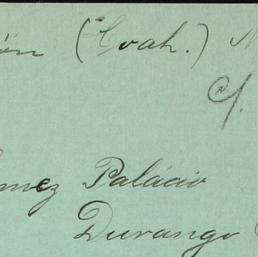 ón (Coah.) N
mez Palácio
Durango